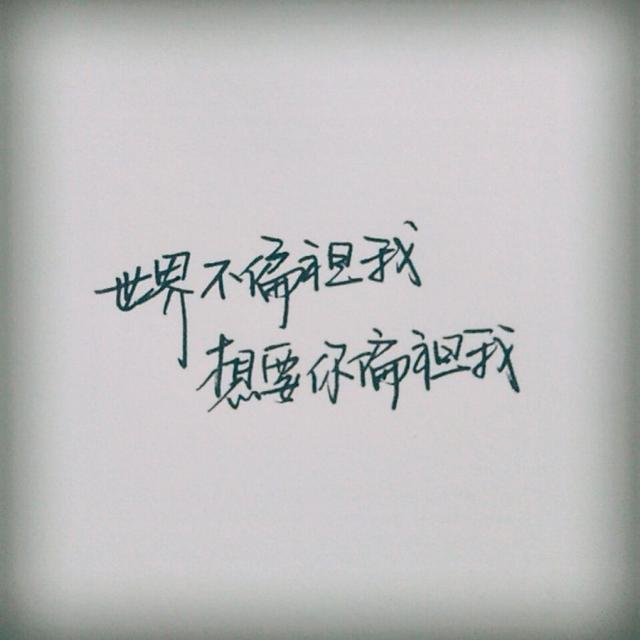 世界不偏袒我
想要你偏袒我